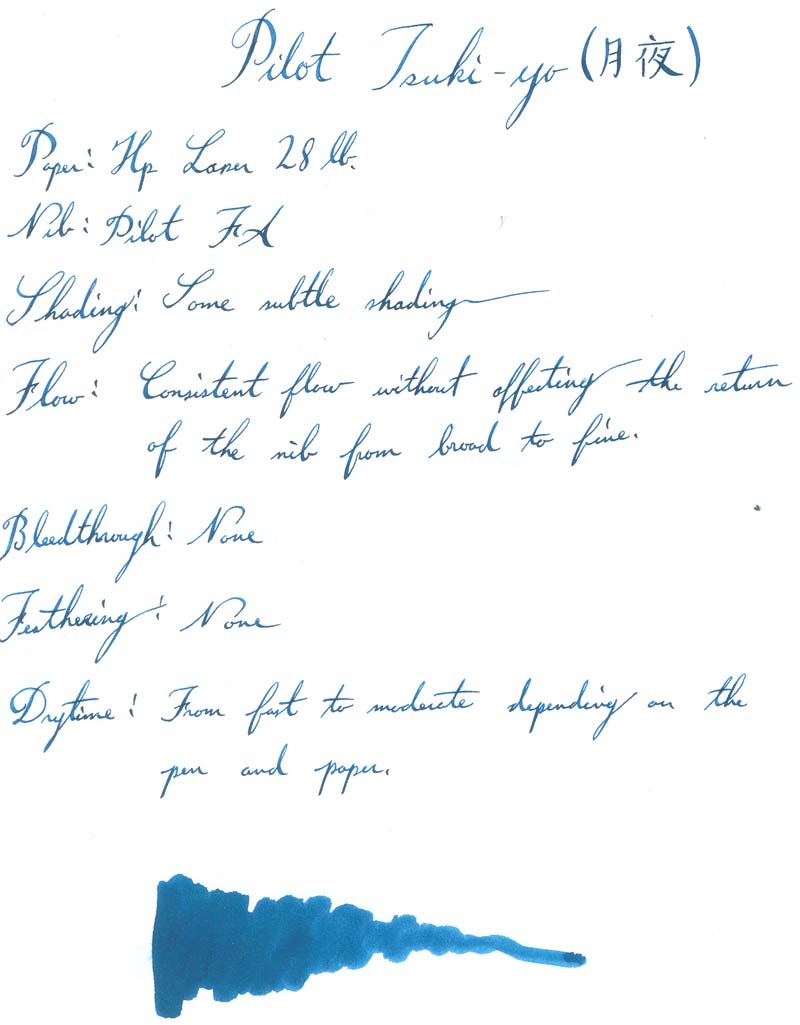 Pilot Tsuki-yo (月夜)
Paper: Hp Laser 28 lb.
Nib: Pilot FA
Shading: Some subtle shading
Flow: Consistent flow without affecting the return
of the nib from broad to fine.
Bleedthrough: None
Feathering: None
Drytime: From fast to moderate depending on the
pen and paper.